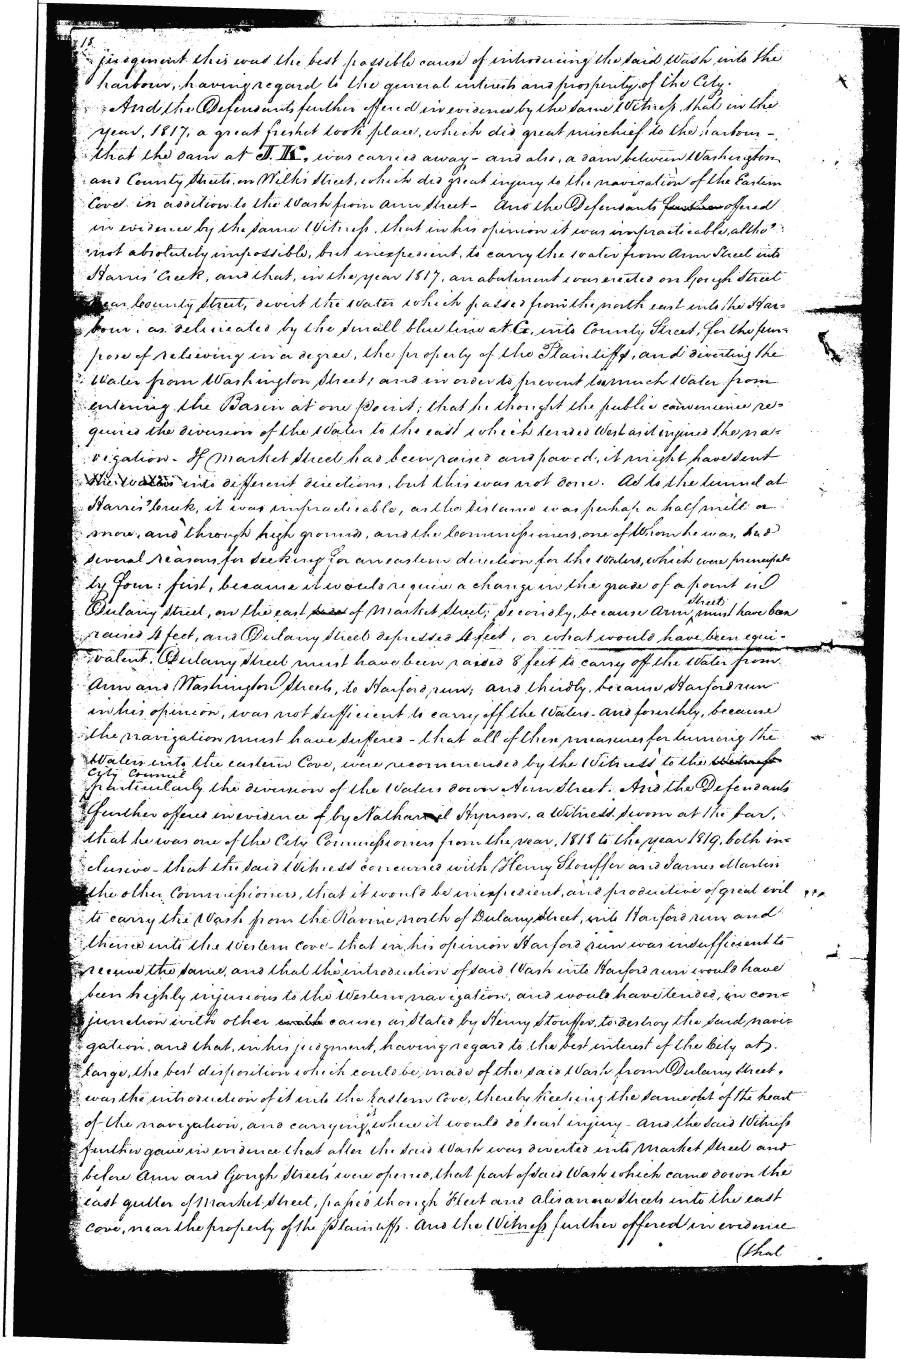 18
judgment this was the best possible cause of introducing the said Wash into the
harbour, having regard to the general interests and prosperity of the City.
And the Defendants further offered in evidence by the same Witness, that in the
year, 1817, a great freshet took place, which did great mischief to the harbour –
that the dam at I.K, was carried away – and also, a dam between Washington
and County Streets, on Wilks Street, which did great injury to the navigation of the Eastern
Cove in addition to the Wash from Ann Street – And the Defendants further offered
in evidence by the same Witness, that in his opinion it was impracticable, altho'
not absolutely impossible, but inexpedient, to carry the water from Ann Street into
Harris' Creek, and that, in the year 1817, an abutment was erected on Gough Street
near County Street, divert the water which passed from the north east into the Har-
bour, as delineated by the small blue line at G, into County Street, for the pur-
pose of relieving in a degree, the property of the Plaintiffs, and diverting the
Water from Washington Street; and in order to prevent too much Water from
entering the Basin at one point; that he thought the public convenience re-
quired the diversion of the Water to the east which tended West and injured the na-
vigation – If Market Street had been raised and paved, it might have sent
the waters into different directions, but this was not done. As to the tunnel at
Harris' Creek, it was impracticable, as the distance was perhaps a half mile or
more, and through high grounds, and the Commissioners, one of whom he was, had
several reasons for seeking for an eastern direction for the waters, which were principal-
ly four: first, because it would require a change in the grade of a point in
Dulany street, on the east side of Market Street; Secondly, because Ann Street must have been
raised 4 feet, and Dulany Street depressed 4 feet, or what would have been equi-
valent, Dulany Street must have been raised 8 feet to carry off the Water from
Ann and Washington Streets, to Harford run; and thirdly, because Harford run
in his opinion, was not sufficient to carry off the Waters – and fourthly, because
the navigation must have suffered – that all of these measures for turning the
Waters into the eastern Cove, were recommended by the Witness to the Witness
City Council
particularly the diversion of the Waters down Ann Street. And the Defendants
further offered in evidence by Nathaniel Hynson, a Witness sworn at the bar,
that he was one of the City Commissioners from the year, 1818 to the year 1819, both in-
clusive – that the said Witness concurred with Henry Stouffer and James Martin
the other Commissioners, that it would be inexpedient, and productive of great evil
to carry the Wash from the Ravine north of Dulany Street, into Harford run and
thence into the Western Cove – that in his opinion Harford run was insufficient to
receive the same, and that the introduction of said Wash into Harford run would have
been highly injurious to the Western navigation, and would have tended, in con-
junction with other causes as stated by Henry Stouffer, to destroy the said navi-
gation, and that, in his judgment, having regard to the best interest of the City at
large, the best disposition which could be made of the said Wash from Dulany Street,
was the introduction of it into the Eastern Cove, thereby keeping the same out of the heart
of the navigation, and carrying it where it would do least injury – And the said Witness
further gave in evidence that after the said Wash was diverted into Market Street and
before Ann and Gough Streets were opened, that part of said Wash which came down the
east gutter of Market Street, passed through Fleet and Alisanna Streets into the east
cove, near the property of the Plaintiffs. And the Witness further offered in evidence
(that